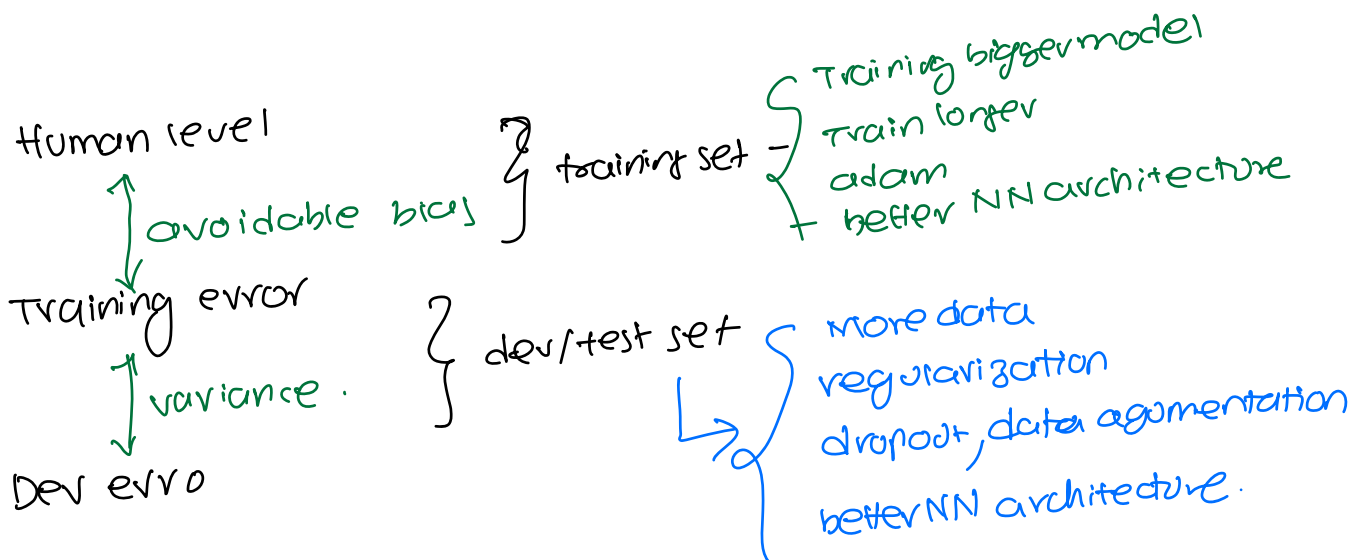 Human level
avoidable bias
Training error
variance.
Dev erro
training set
Training bigger model
Train longer
adam
better NN architecture
dev/test set
More data
regularization
dropout, data agumentation
better NN architecture.